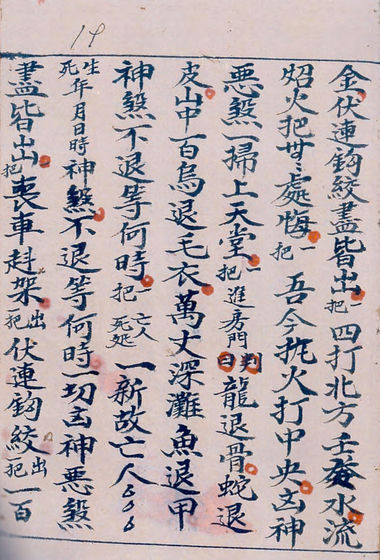 金伏連鈎絞盡皆出一把四打北方壬癸水流
火把處悔一把吾今火打中央凶神
惡煞一掃上天堂一把進房門判曰龍退骨蛇退
皮山中百鳥退毛衣萬丈深灘魚退甲
神煞不退等何時一把亡人死一新故亡人
生死年月日時神煞不退等何時一切凶神惡煞
盡皆出把喪車架出把伏連鈎絞出把一百